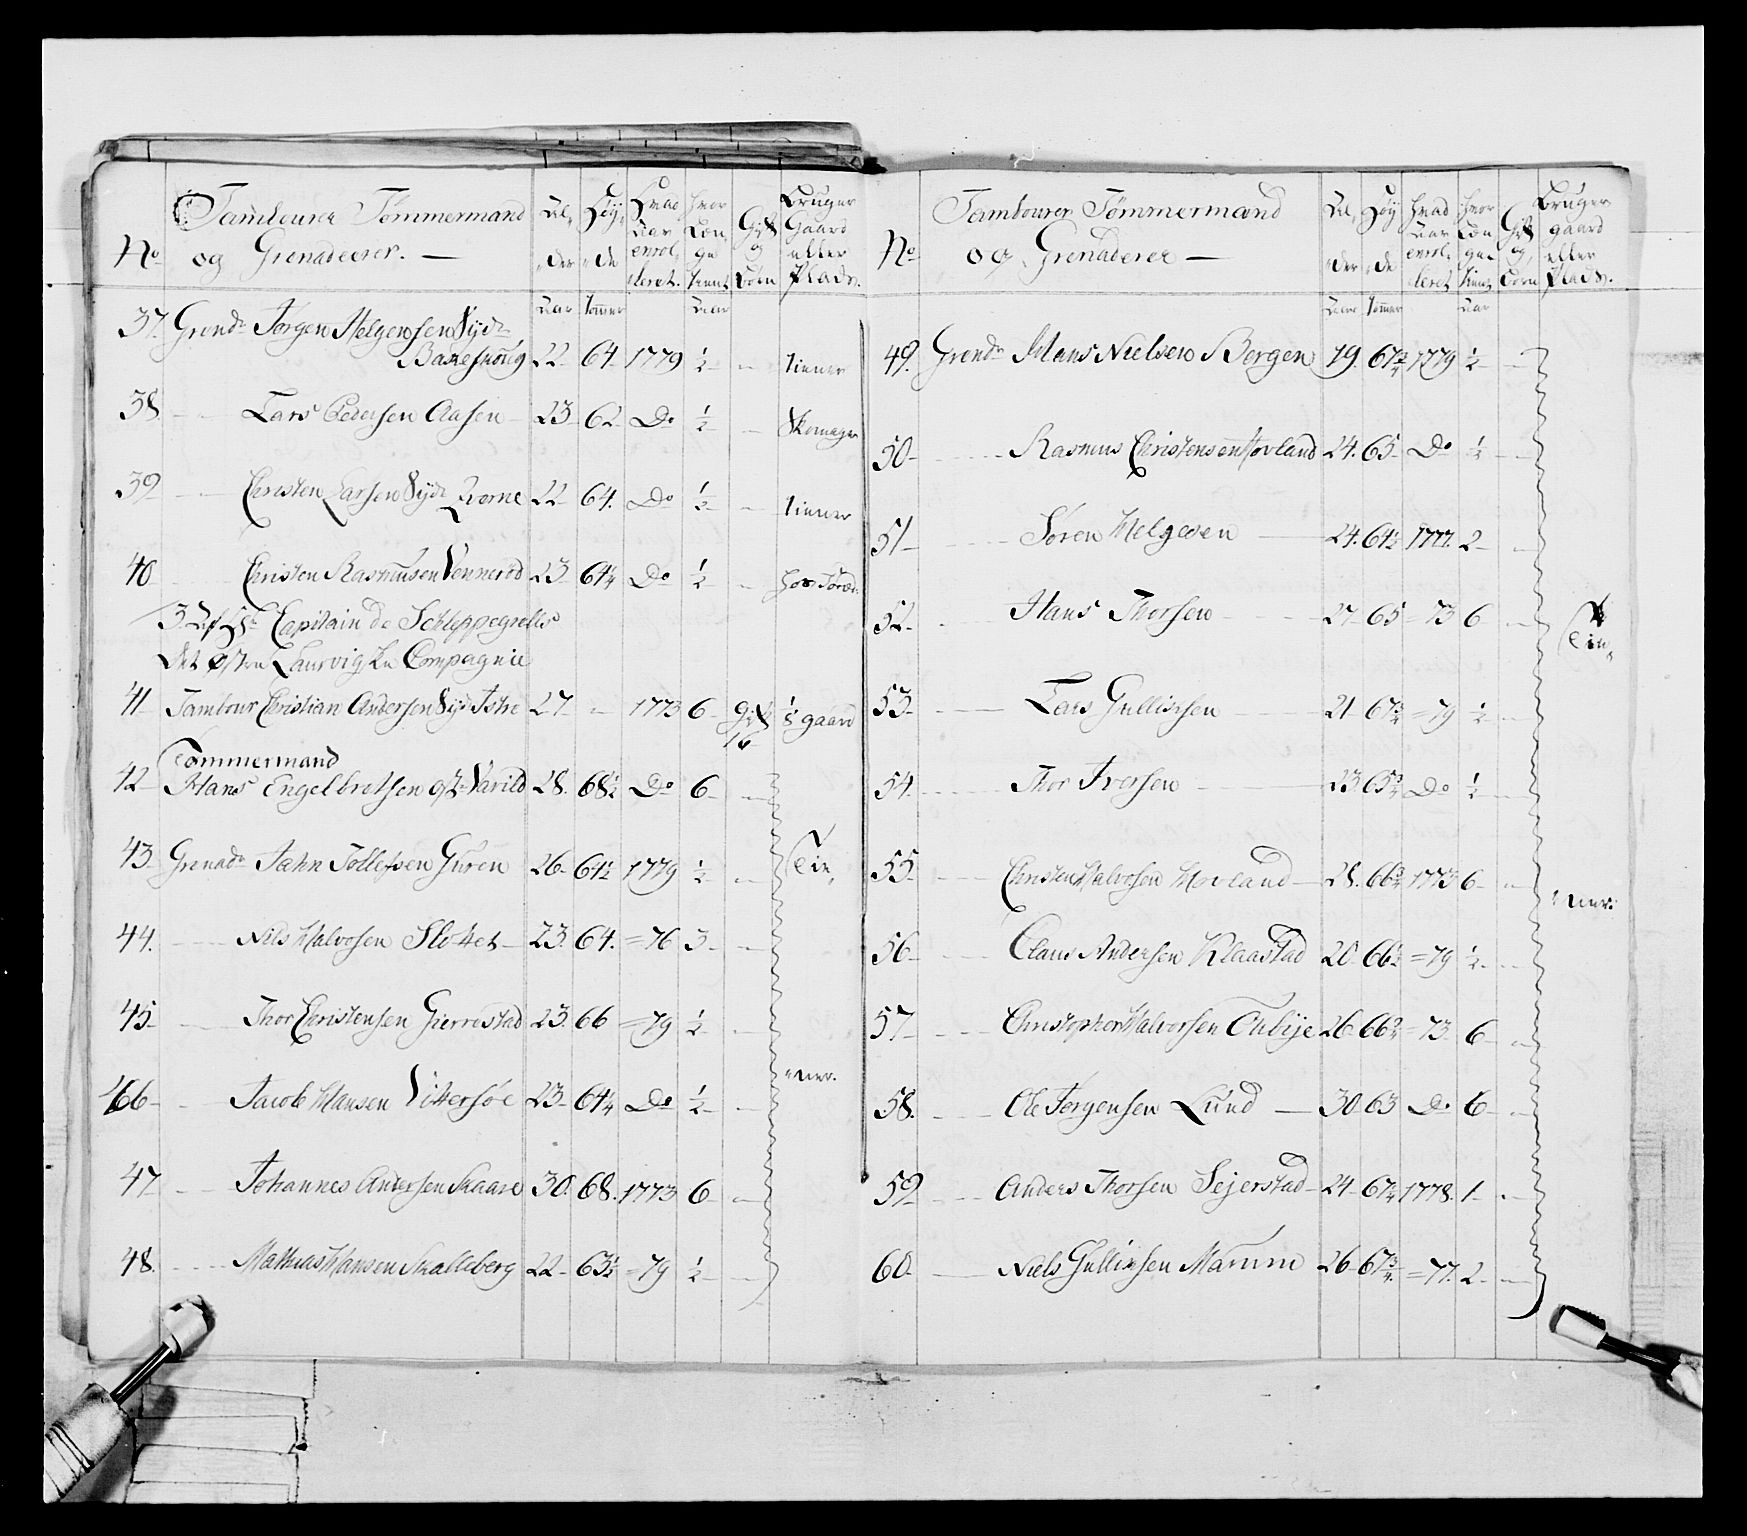 No Tambourer Tømmermænd og Grenaderer. — Al,der Høy,de Hvad Aar enrolleret. Hvor Længe tient Gift og Børn Bruger Gaard eller Plads.
Aar Tommer Aar
37. Grendr Jørgen Helgersen
22 64 1779 ½ – tiener
38 – – Lars Pedersen Aasen 23 62 Do ½ – Skomager
39 – – Christen Larsen 22 64. Do ½ – tiener
40 – – Christen Rasmusen Vennerød 23 64¼ Do ½ –
Capitain de Schleppegrells
Laurvigske Compagnie
41 Tambour Christian Andersen 27 – 1773 6 gift 1b gaard
Tømmermand
42 Hans Engelbretsen Varild 28. 68½ Do 6 –
43 Grenadr Jahn Tollefsen Guren 26 64½ 1779 ½ – Tie
44. – – Nils Halvosen Stoket 23. 64. = 76 3 –
45 – – Thor Christensen Gierrestad 23. 66 = 79 ½ –
46 – – Jacob Hansen Vittersøe 23 64¼ Do ½ – ner.
47 – – Johannes Andersen Skaare 30. 68. 1773 6 –
48. – – Mathias Hansen Skalleberg 22 63½ = 79 ½ –
No Tambourer Tømmermænd og Grenaderer — Al,der Høyde Hvad Aar enrolleret Hvor Længe tient Gift og Børn Bruger gaard eller Plads.
Aar Tommer Aar
49. Grendr Hans Nielsen Bergen 19. 67¾ 1779 ½ –
50 – – Rasmus Christensen Hovland 24. 65 Do ½ –
51 – – Søren Helgesen — 24. 64½ 1777. 2 –
52 – – Hans Thorsen – – 27 65 = 73 6 – Tie
53 – – Lars Gullichsen — 21 67¾ = 79 ½ –
54. – – Thor Iversen — 23. 65¾ Do ½ –
55 – – Christen Halvosen Hovland – 28. 66¾ 1773 6 – ner.
56 – – Claus Andersen Klaastad 20 66½ = 79 ½ –
57 – – Christopher Halvorsen 26 = 73 6 –
58. – – Ole Jørgensen Lund — 30 63 Do 6 –
59 – – Anders Thorsen Sejerstad 24 67¼ 1778. 1 –
60 – – Niels Gullichsen 26 67¾ = 77. 2 –